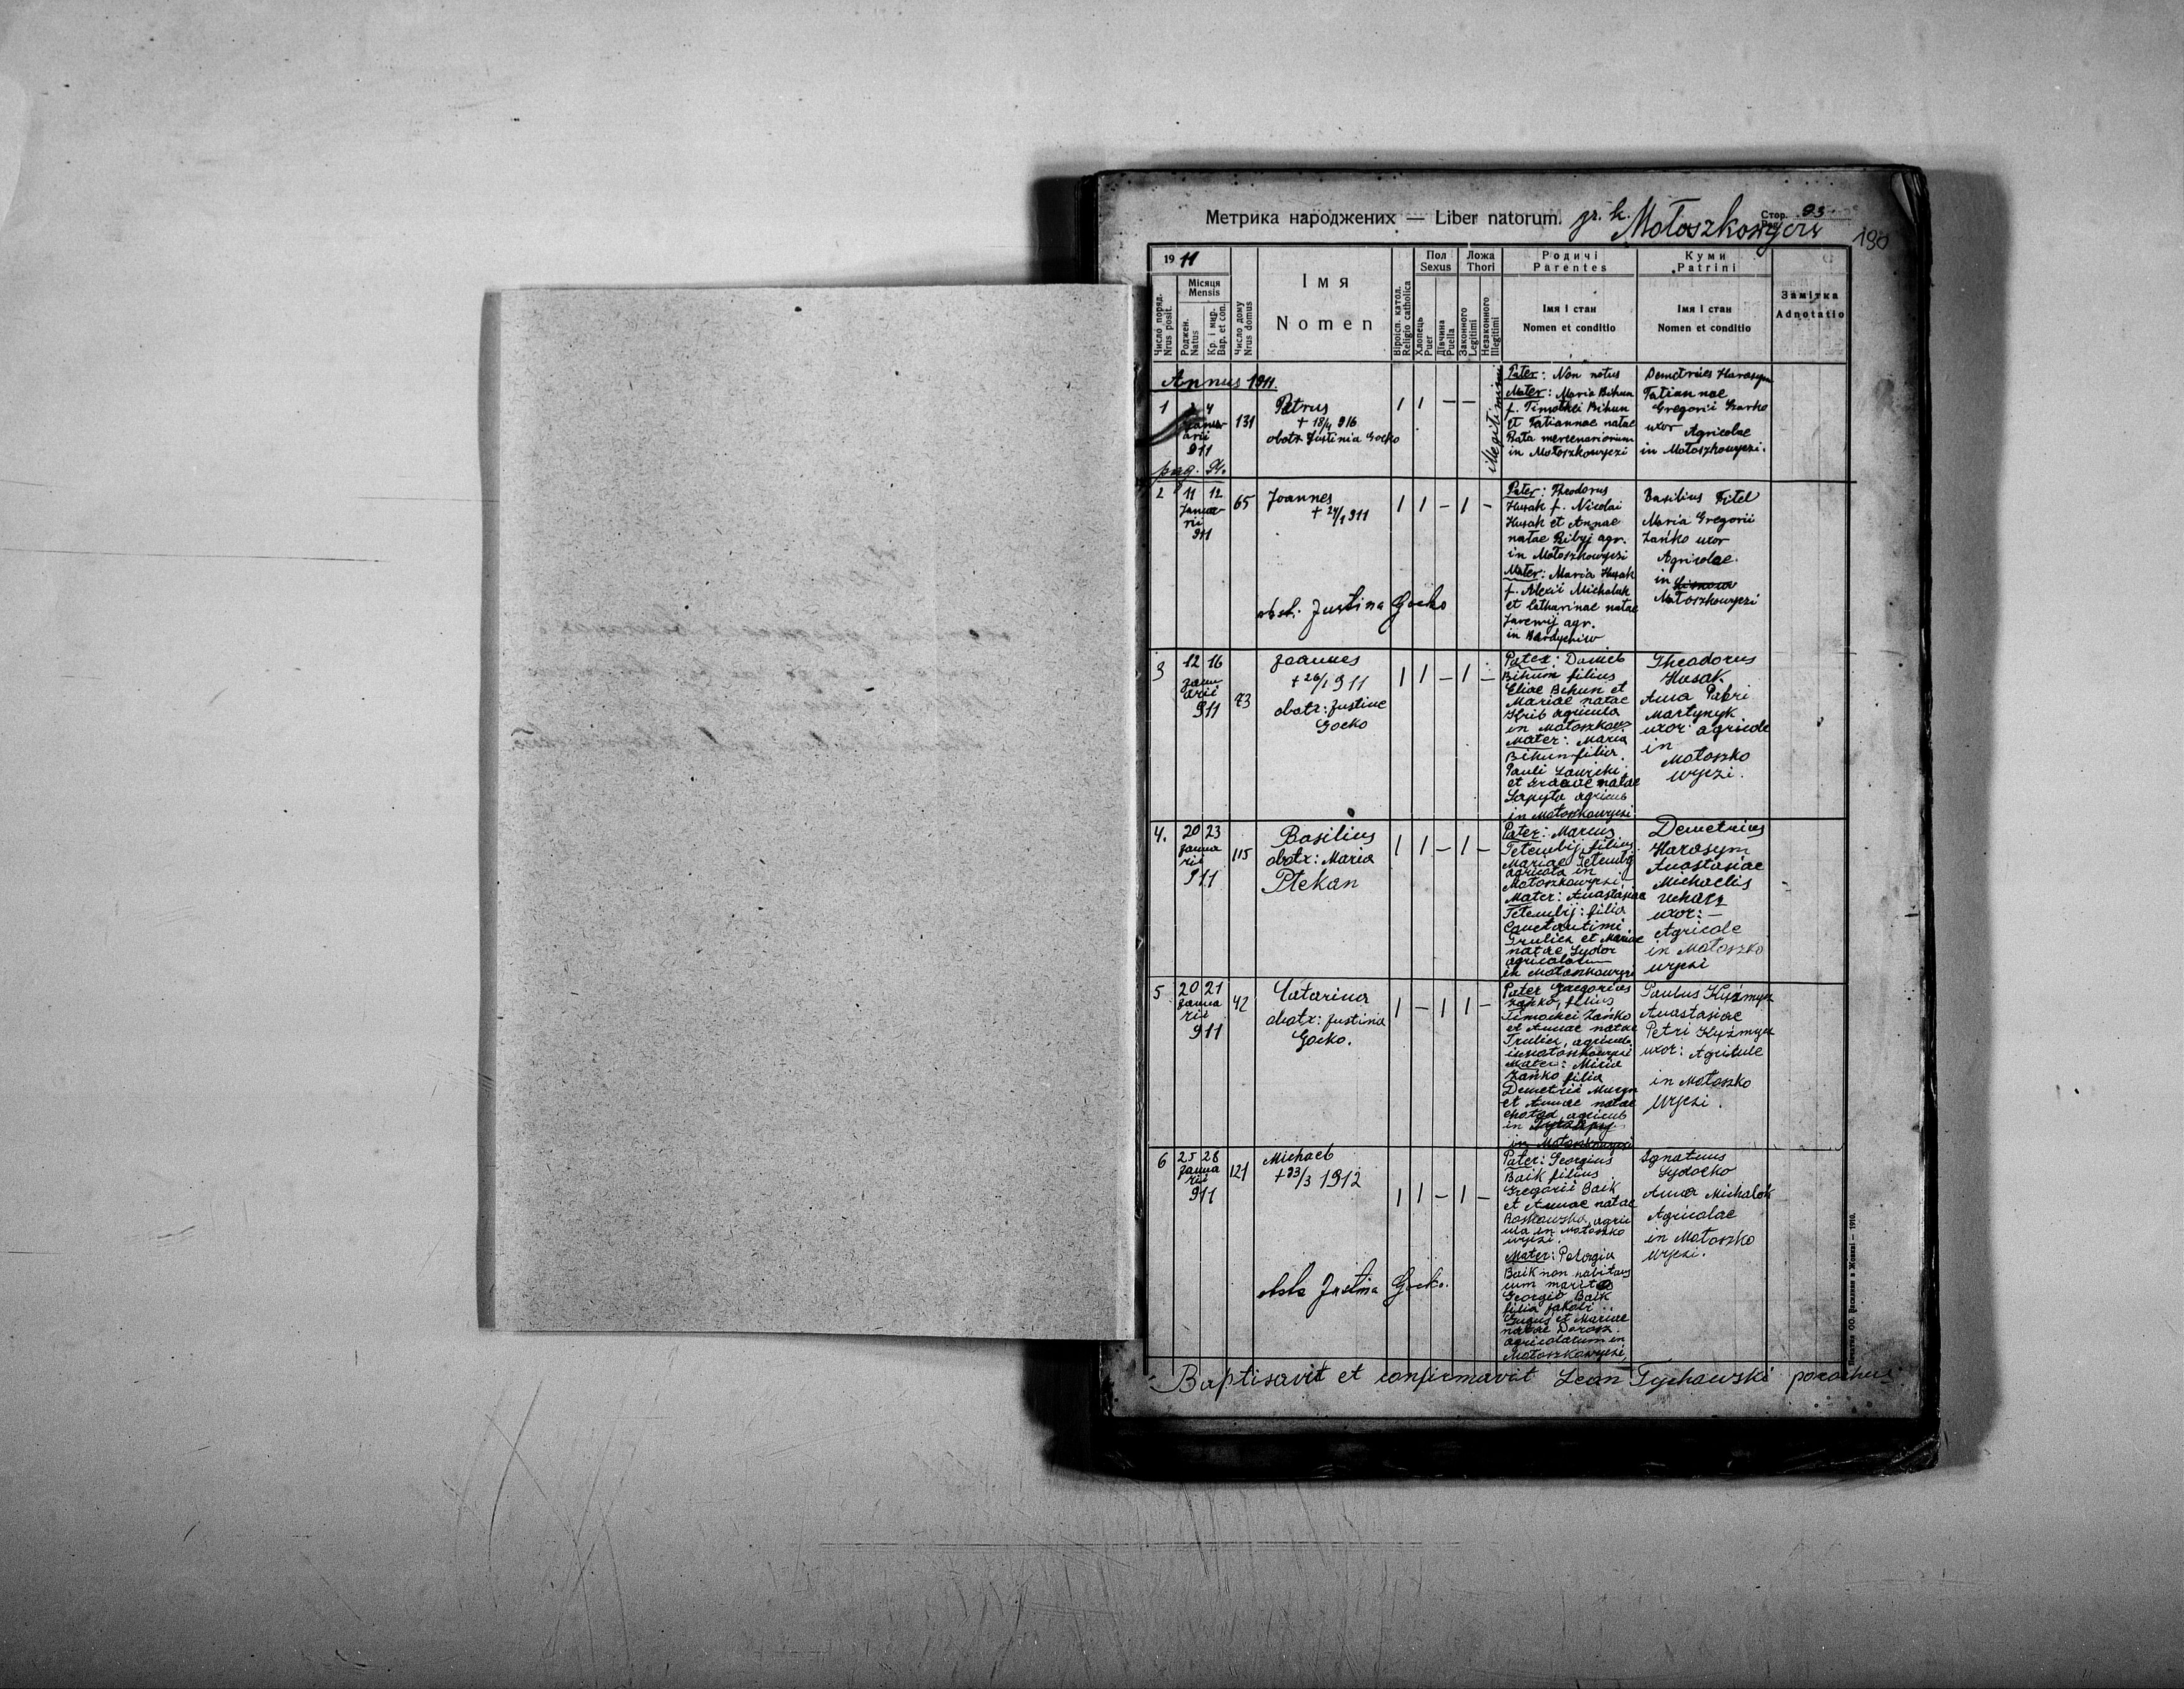 Метрика народжених — Liber natorum. gr. k. Mołoszkowyczi
Стор. 93
190
19 11
Число поряд. Nrus posit.
Місяця Mensis
Роджен. Natus
Кр. і мир. Bap. et con.
Число дому Nrus domus
Імя
Nomen
Віросп. катол. Religio catholica
Пол Sexus
Хлопець Puer
Дївчина Puella
Ложа Thori
Законного Legitimi
Незаконного Illegitimi
Родичі
Parentes
Імя і стан
Nomen et conditio
Куми
Patrini
Імя і стан
Nomen et conditio
Замітка
Adnotatio
Annus 1911.
1
4
Januarii
911
131
Petrus
+ 18/4 916
obstx Justinia Gocko
1 1 — —
illegitimi
Pater: Non notus
Mater: Maria Bihun
f. Timothei Bihun
et Tatiannae natae
Bata mercenariorum
in Mołoszkowyczi
Demetrius Harasym
Tatiannae
Gregorii Zarko
uxor Agricolae
in Mołoszkowyczi.
pag. 91.
2
11 12
Januarii
911
65
Joannes
+ 24/1 911
obst. Justina Gocko
1 1 — 1 —
Pater: Theodorus
Husak f. Nicolai
Husak et Annae
natae Bibyj agr.
in Mołoszkowyczi
Mater: Maria Husak
f. Alexii Michaluk
et Catharinae natae
Jaremij agr.
in Berdychiw
Basilius Fitel
Maria Gregorii
Zańko uxor
Agricolae
in
Mołoszkowyczi
3
12 16
Januarii
911
73
Joannes
+ 26/1 911
obstx: Justine
Gocko
1 1 — 1 —
Pater: Daniel
Bihun filius
Eliae Bihun et
Mariae natae
Hrib agricola
in Mołoszkow.
Mater: Maria
Bihun filia
Pauli Lawricki
et Graciae natae
Sapyta agricol
in Mołoszkowyczi
Theodorus
Husak
Anna Petri
Martynyk
uxor agricole
in
Mołoszko
wyczi.
4.
20 23
Januarii
911
115
Basilius
obstx: Maria
Plekan
1 1 — 1 —
Pater: Marcus
Tetembij, filius
Mariae Tetembij
agricola in
Mołoszkowyczi
Mater: Anastasiae
Tetembij: filia
Constantini
Grulicz et Mariae
natae Sydor
agricolarum
in Mołoszkowyczi
Demetrius
Harasym
Anastasiae
Michaelis
Uchacz
uxor: —
Agricole
in Mołoszko
wyczi
5
20 21
Januarii
911
42
Catarina
obstx: Justina
Gocko.
1 — 1 1 —
Pater Gregorius
Zańko, filius
Timothei Zańko
et Annae natae
Trulicz, agricola
in Mołoszkowyczi
Mater: Maria
Zańko filia
Demetrii Muzyn
et Annae natae
agricol
in
in Mołoszkowyczi
Paulus Kuźmycz
Anastasiae
Petri Kuźmycz
uxor: Agricule
in Mołoszko
wyczi.
6
25 28
Januarii
911
121
Michael
+ 23/3 1912
obstx Justina Gocko.
1 1 — 1 —
Pater: Georgius
Baik filius
Gregorii Baik
et Annae natae
Roskowska, agric
ola in Mołoszko
wyczi.
Mater: Pelagia
Baik non habitans
cum marito
Georgio Baik
filia Jakobi
Gugus et Mariae
natae Dorosz.
agricolarum in
Mołoszkowyczi,
Ignatius
Sydocko
Anna Michalok
Agricolae
in Mołoszko
wyczi.
Baptisavit et confirmavit Leon Tychowski parochus
Печатня ОО. Василиян в Жовкві — 1910.